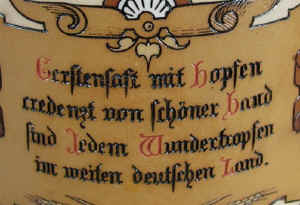 Gerstensaft mit Hopfen
credenzt von schöner Hand
sind Jedem Wundertropfen
im weiten deutschen Land.